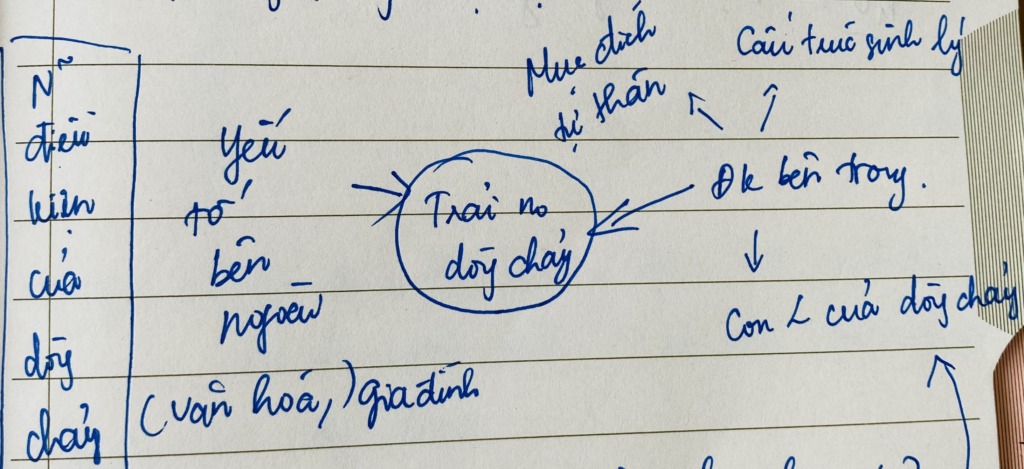 Mục đích
tự thân
Cấu trúc sinh lý
N~
điều
kiện
của
dòng
chảy
Yếu
tố
bên
ngoài
(văn hoá,) gia đình
Trải no
dòng chảy
Đk bên trong.
Con L của dòng chảy